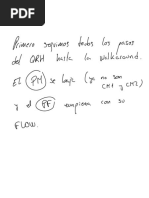 Primero seguimos todos los pasos
del QRH hasta la walkaround.
El PM se baja (ya no son
CM1 y CM2)
y el PF empieza con su
FLOW.